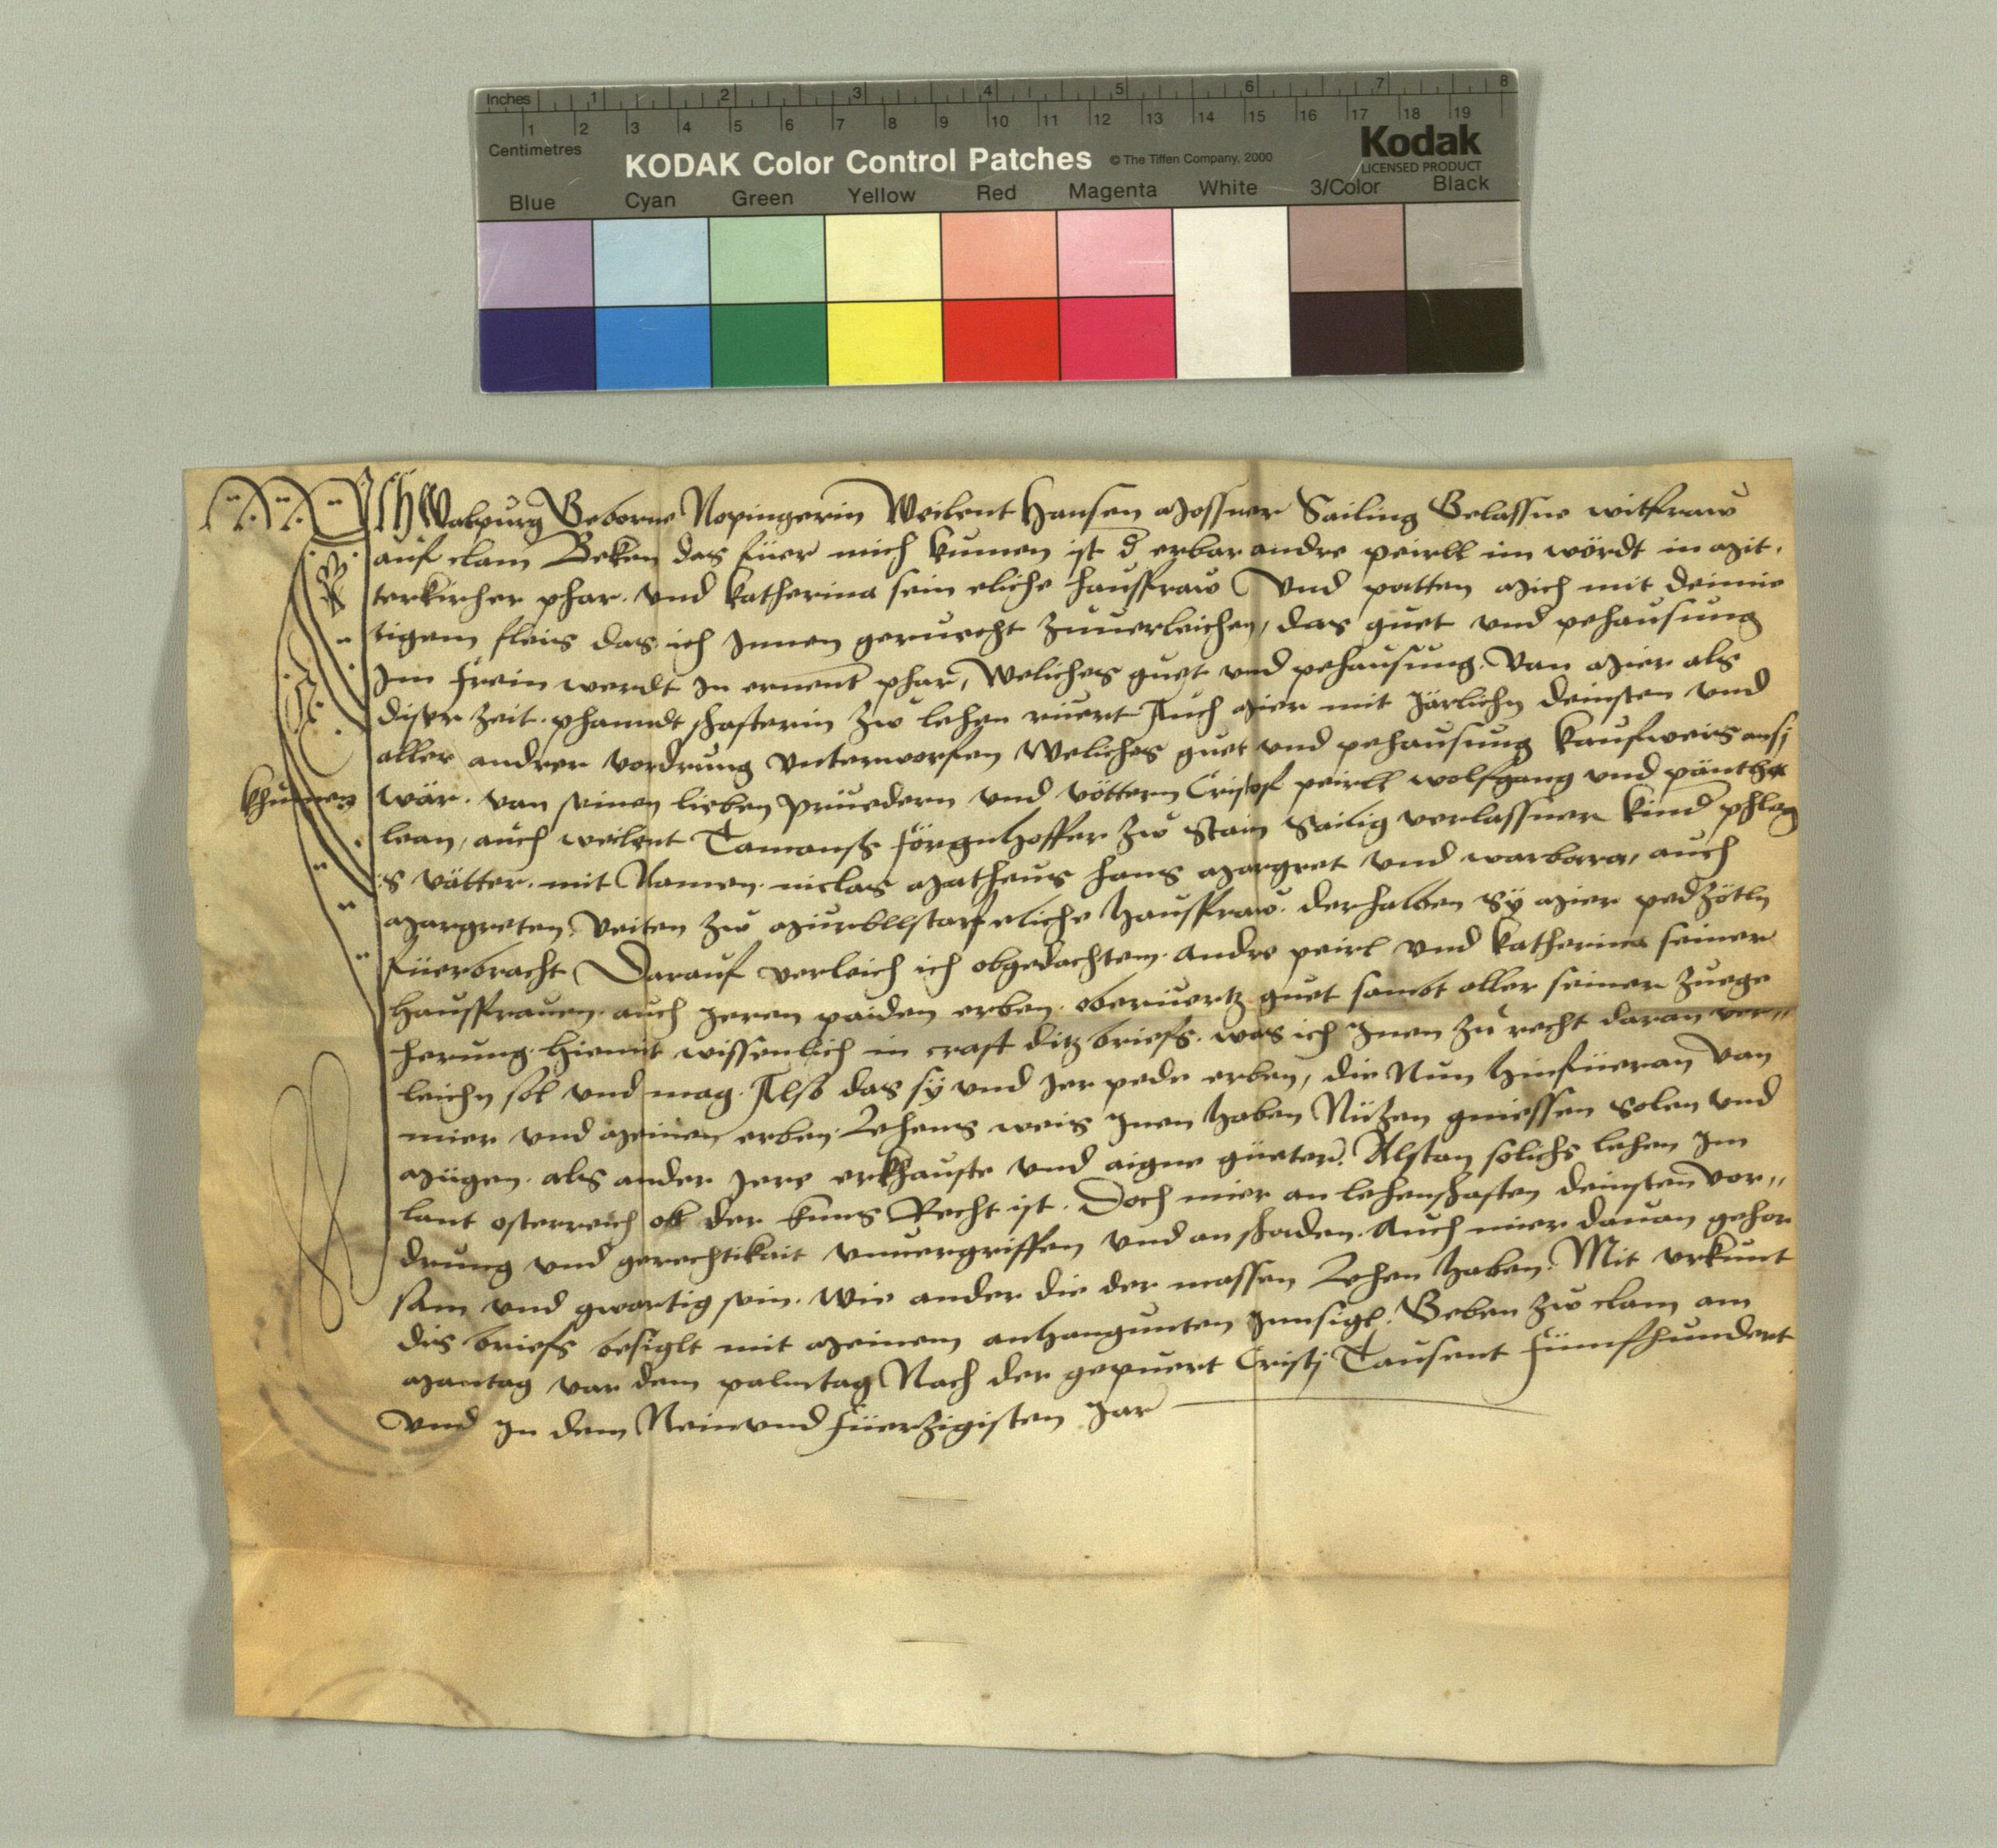 Inches 1 2 3 4 5 6 7 8
1 2 3 4 5 6 7 8 9 10 11 12 13 14 15 16 17 18 19
Centimetres
KODAK Color Control Patches © The Tiffen Company, 2000 Kodak
LICENSED PRODUCT
Blue Cyan Green Yellow Red Magenta White 3/Color Black
Ich Walpurg Geborne Nopingerin Weilent Hansen Mossner Sailing Gelassne witfraw
auf clam Beken das füer mich kumen ist d erbar andre peirll im wördt in Mit
terkircher phar. vnd katherina sein eliche hausfraw Vnd patten Mich mit deimie
tigem fleis das ich Innen geruecht Zuuerleichen, das guet vnd pehausung
Im frein werdt In ernent phar, Weliches guet vnd pehausung. Van Mier als
diser Zeit phanndtschafterin Zw lehen ruert Auch Mier mit Järlichn deinsten vnd
aller andrer vordrung Vnterworfen Weliches guet vnd pehausung kaufweis an si
khumen wär. van seinen lieben Pruedern vnd vöttern Cristof peirll wolfgang vnd pänthe
lean, auch weilent Tamansch förgnhoffer Zw Stain Sailig verlassner kind phleg
s vätter. mit Namen. niclas Matheus hans Margret vnd warbara, auch
Margreten. Veiten Zw eliche Hausfraw. derhalben Sy Mier pedzötln
füerbracht Darauf verleich ich obgedachtem. Andre peirl vnd katherina seiner
Hausfrauen. auch Ieren paiden erben. guet sambt aller seiner Zuege
herung. Hiemit wissenlich in craft ditz briefs. was ich Inen zu recht daran ver„
leichn sol vnd mag. Also das sy vnd Ier pede erben, die Nun Hinfüeran Van
mier vnd Meinen erben. Lehens weis Inen Haben Nützen gniessen Solen vnd
Mügen. als ander Iere erkhaufte vnd aigne güeter. Alstan solichs lehen Im
lant osterreich ob der Enns Recht ist. Doch mier an lehenschaften deinsten vor„
drung vnd gerechtikait vnuergriffen vnd an schaden. Auch mier dauan gehor
sam vnd gwartig sein. Wie ander die der massen Lehen Haben. Mit vrkunt
dis briefs besiglt mit Meinem anhangunten Innsigl. Geben Zw clam am
Mantag var dem palmtag Nach der gepuert Cristj Tausent fümfhundert
Vnd In dem Neinvnd füerzigisten Jar